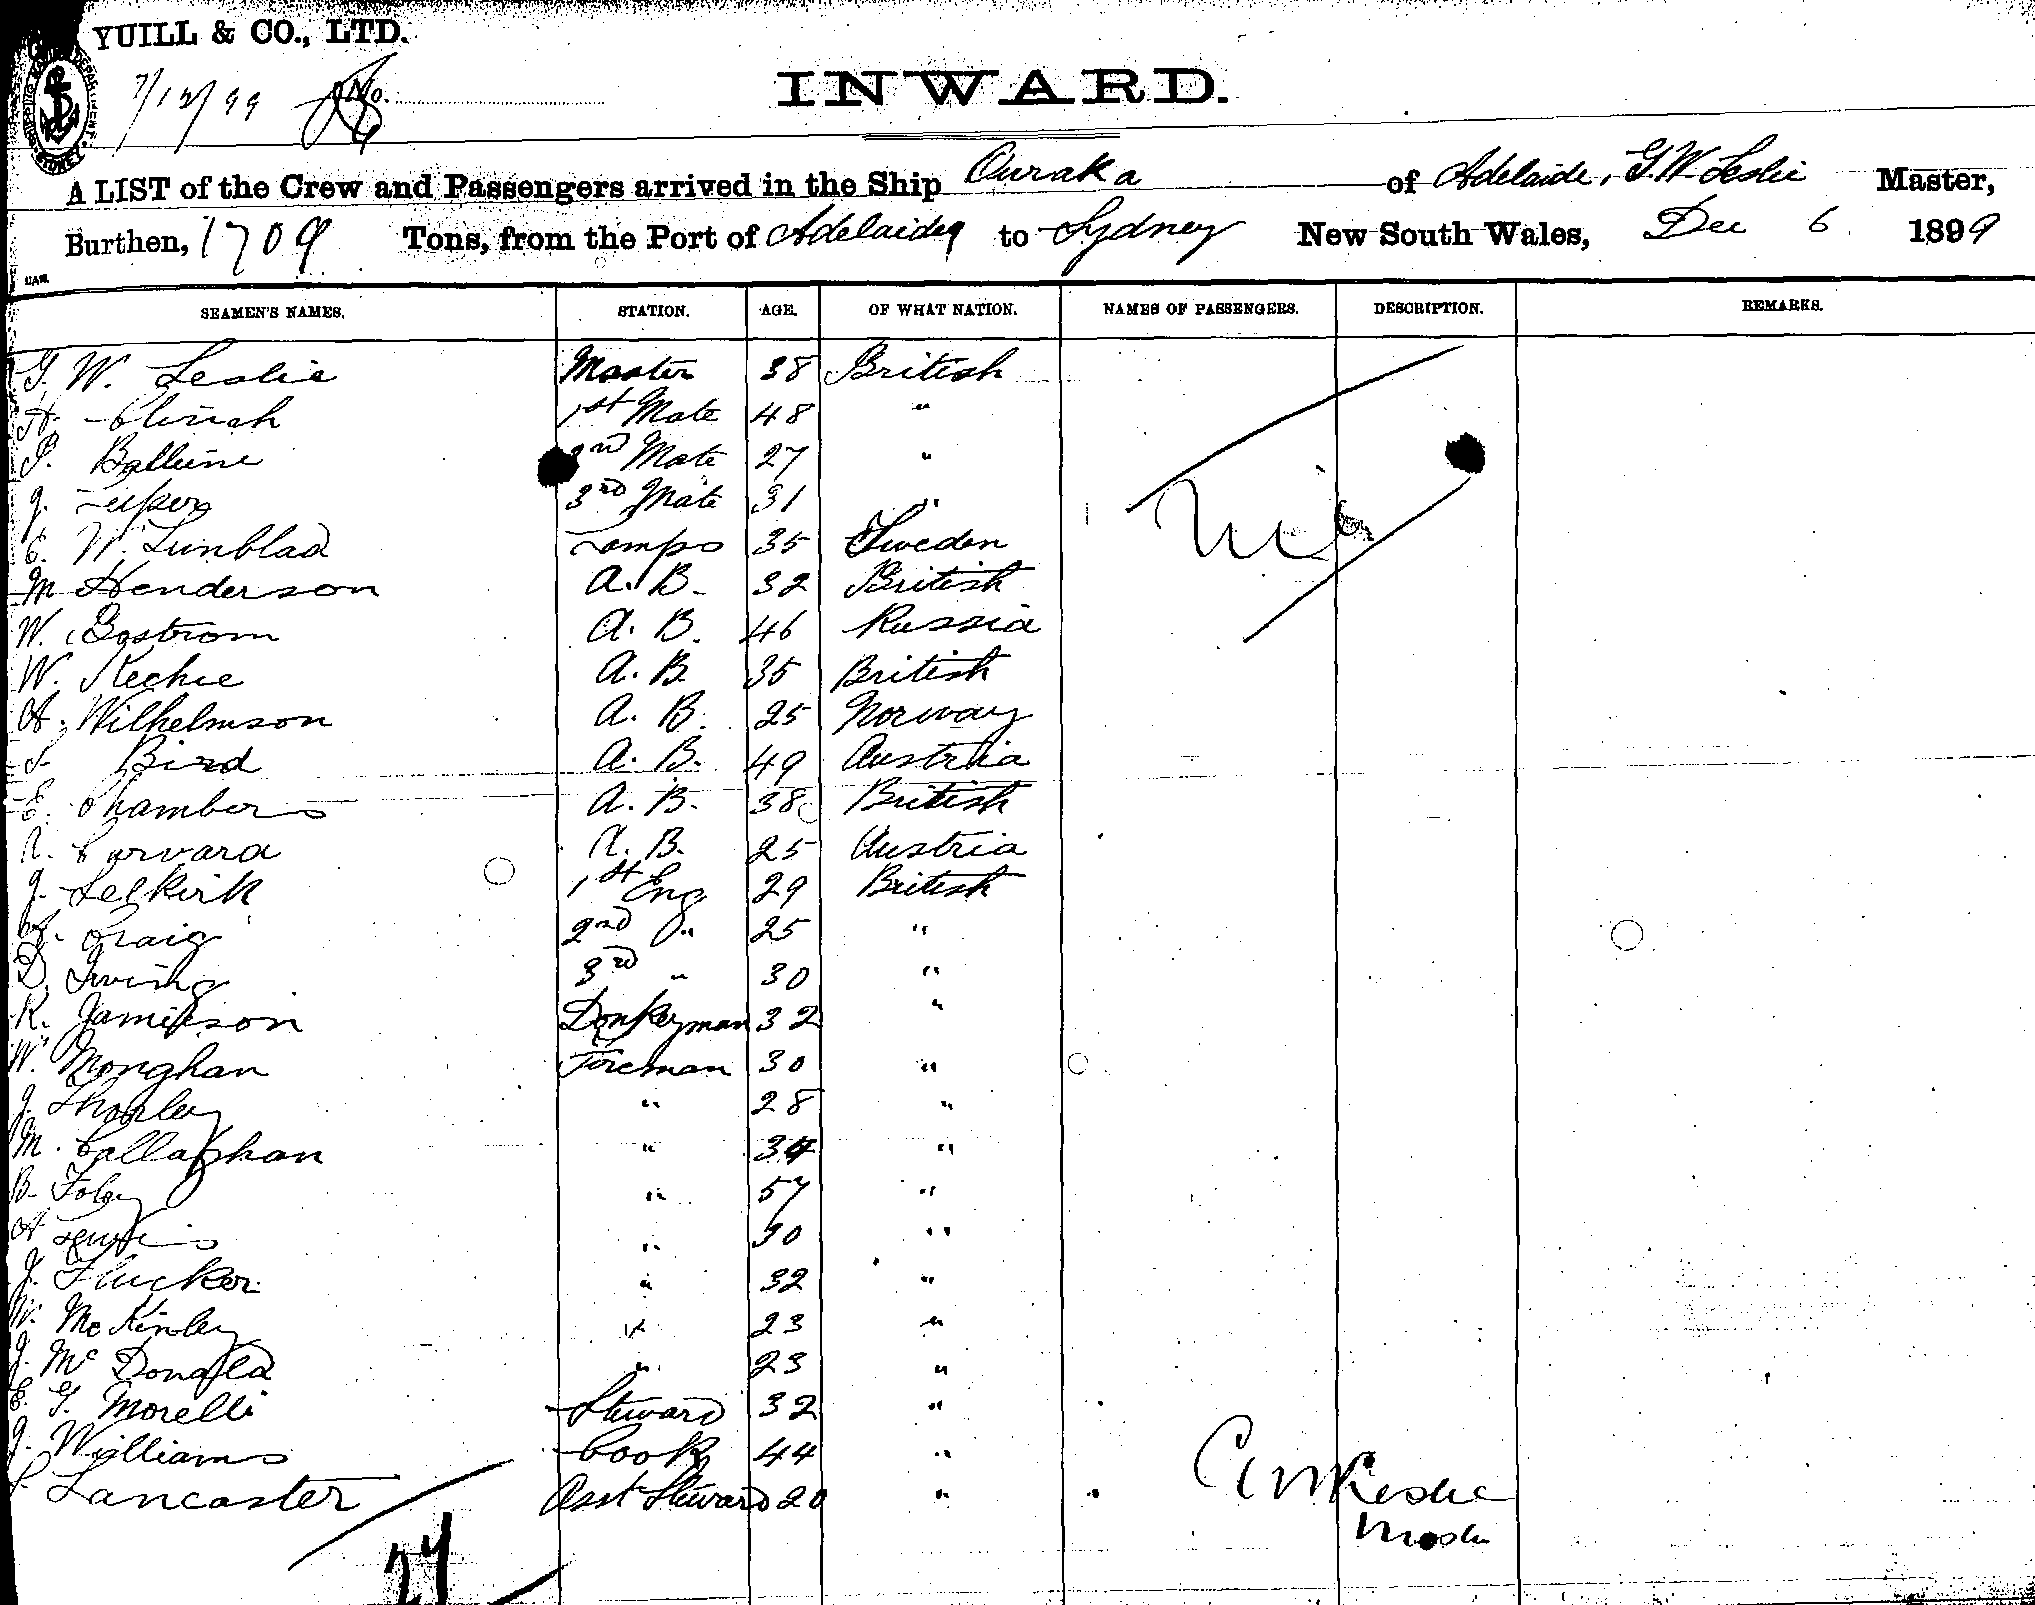 YUILL & CO., LTD.
7/12/99 No.
SYDNEY
INWARD.
A LIST of the Crew and Passengers arrived in the Ship Ouraka of Adelaide, G. W. Leslie Master,
Burthen, 1709 Tons, from the Port of Adelaide to Sydney New South Wales, Dec 6 1899
SEAMEN'S NAMES. STATION. AGE. OF WHAT NATION. NAMES OF PASSENGERS. DESCRIPTION. REMARKS.
G. W. Leslie Master 38 British
A. Clinch 1st Mate 48 "
P. Balleine 2nd Mate 27 "
J. 3rd Mate 31 "
Nil
E. W. Lunblad Lamps 35 Sweden
M Henderson A. B. 32 British
W. Bostrom A. B. 46 Russia
W. Kechie A. B. 35 British
A. Wilhelmson A. B. 25 Norway
Bird A. B. 49 Austria
E. Chambers A. B. 38 British
A. B. 25 Austria
J. Selkirk 1st Eng 29 British
Craig 2nd " 25 "
D. Irving 3rd " 30 "
R. Jamieson Donkeyman 32 "
W. Monghan Foreman 30 "
J. Thorley " 28 "
M. Callaghan " 34 "
B. Foley " 57 "
A Lewis " 30 "
J. Flucker " 32 "
W. McKinley " 23 "
J. McDonald " 23 "
E. G. Morelli Steward 32 "
J. Williams Cook 44 "
Lancaster Asst Steward 20 "
G W Leslie
Master
27